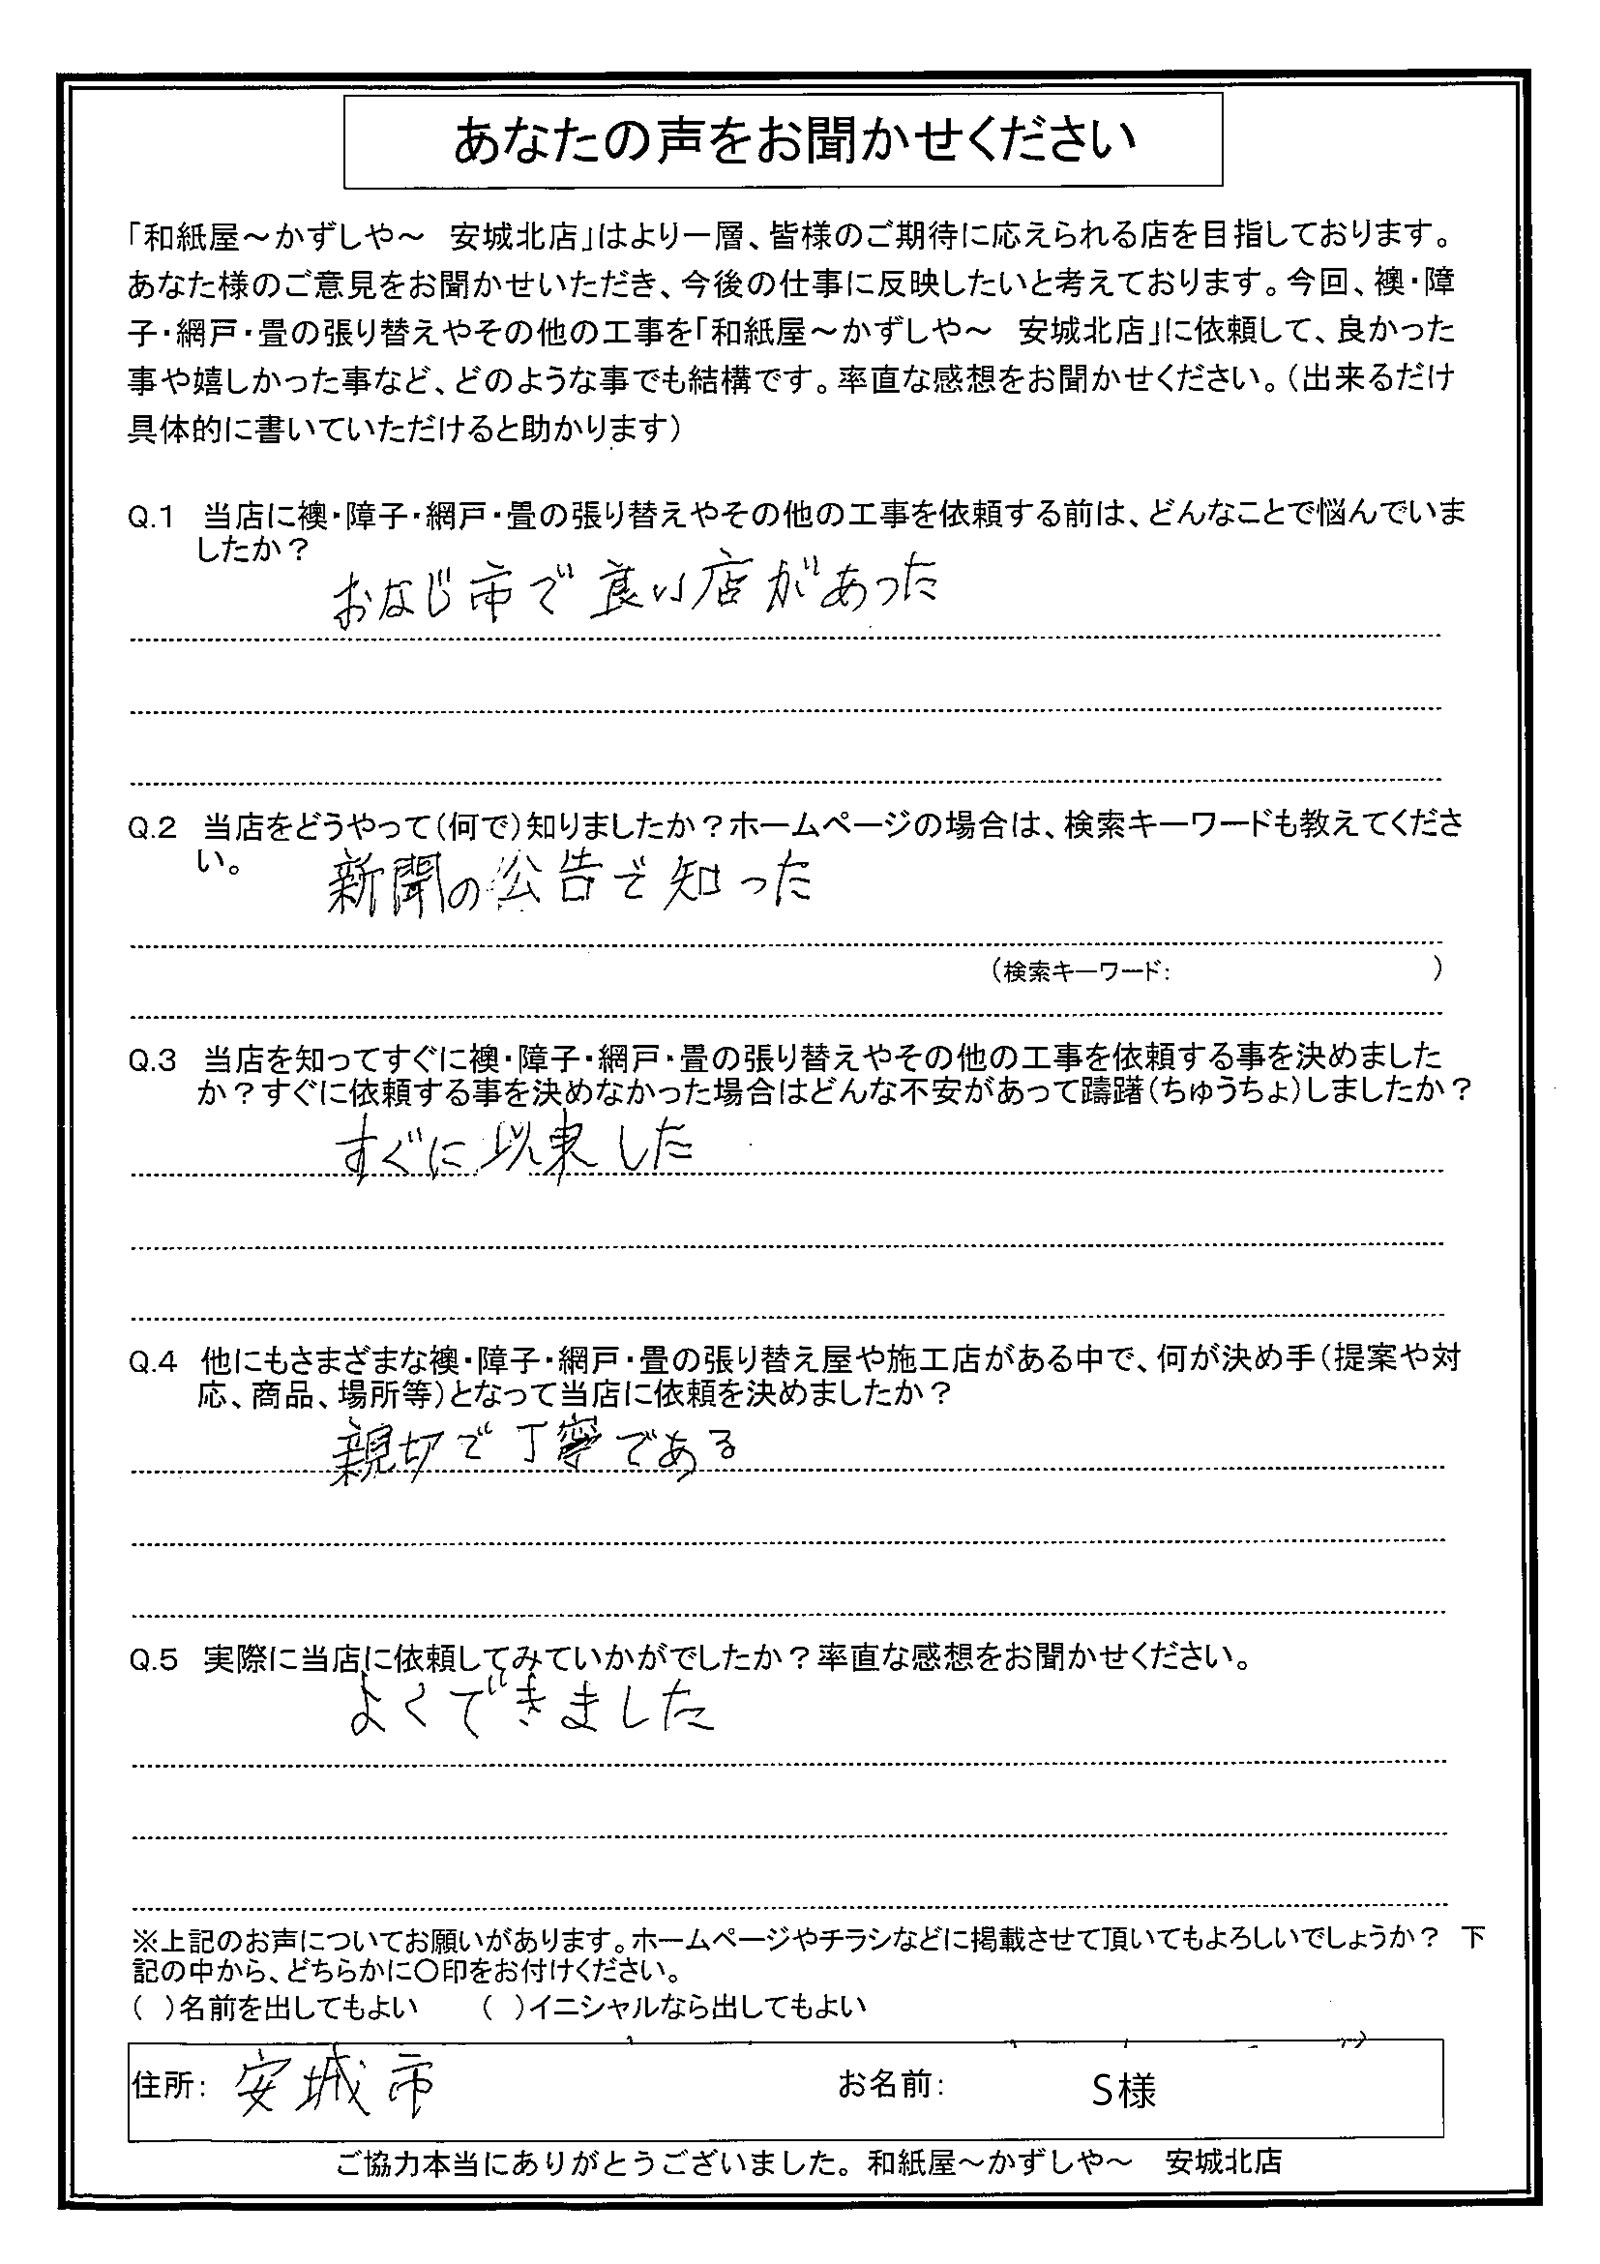 あなたの声をお聞かせください
「和紙屋～かずしや～　安城北店」はより一層、皆様のご期待に応えられる店を目指しております。
あなた様のご意見をお聞かせいただき、今後の仕事に反映したいと考えております。今回、襖・障
子・網戸・畳の張り替えやその他の工事を「和紙屋～かずしや～　安城北店」に依頼して、良かった
事や嬉しかった事など、どのような事でも結構です。率直な感想をお聞かせください。（出来るだけ
具体的に書いていただけると助かります）
Q.1　当店に襖・障子・網戸・畳の張り替えやその他の工事を依頼する前は、どんなことで悩んでいま
したか？
おなじ市で良い店があった
Q.2　当店をどうやって（何で）知りましたか？ホームページの場合は、検索キーワードも教えてくださ
い。
新聞の公告で知った
（検索キーワード：　　　　　　　　）
Q.3　当店を知ってすぐに襖・障子・網戸・畳の張り替えやその他の工事を依頼する事を決めました
か？すぐに依頼する事を決めなかった場合はどんな不安があって躊躇（ちゅうちょ）しましたか？
すぐに以来した
Q.4　他にもさまざまな襖・障子・網戸・畳の張り替え屋や施工店がある中で、何が決め手（提案や対
応、商品、場所等）となって当店に依頼を決めましたか？
親切で丁寧である
Q.5　実際に当店に依頼してみていかがでしたか？率直な感想をお聞かせください。
よくできました
※上記のお声についてお願いがあります。ホームページやチラシなどに掲載させて頂いてもよろしいでしょうか？　下
記の中から、どちらかに〇印をお付けください。
（　）名前を出してもよい　　（　）イニシャルなら出してもよい
住所：安城市　　お名前：　S様
ご協力本当にありがとうございました。和紙屋～かずしや～　安城北店